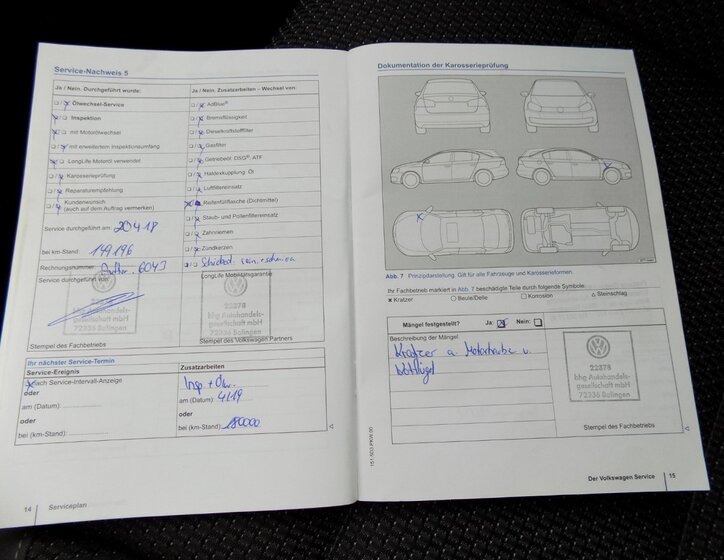 Service-Nachweis 5
Ja / Nein. Durchgeführt wurde:
Ölwechsel-Service
Inspektion
mit Motorölwechsel
mit erweitertem Inspektionsumfang
LongLife Motoröl verwendet
Karosserieprüfung
Reparaturempfehlung
Kundenwunsch
(auch auf dem Auftrag vermerken)
Service durchgeführt am: 20.4.18
bei km-Stand: 149196
Rechnungsnummer:
Service durchgeführt von:
22878
bhg Autohandels-
gesellschaft mbH
72336 Balingen
Stempel des Fachbetriebs
Ja / Nein. Zusatzarbeiten – Wechsel von:
AdBlue®
Bremsflüssigkeit
Dieselkraftstofffilter
Gasfilter
Getriebeöl: DSG®, ATF
Haldexkupplung: Öl
Luftfiltereinsatz
Reifenfüllflasche (Dichtmittel)
Staub- und Pollenfiltereinsatz
Zahnriemen
Zündkerzen
LongLife Mobilitätsgarantie
22878
bhg Autohandels-
gesellschaft mbH
72336 Balingen
Stempel des Volkswagen Partners
Ihr nächster Service-Termin
Service-Ereignis
nach Service-Intervall-Anzeige
oder
am (Datum):
oder
bei (km-Stand):
Zusatzarbeiten
am (Datum): 4.19
oder
bei (km-Stand): 180000
14 Serviceplan
Dokumentation der Karosserieprüfung
Abb. 7 Prinzipdarstellung: Gilt für alle Fahrzeuge und Karosserieformen.
Ihr Fachbetrieb markiert in Abb. 7 beschädigte Teile durch folgende Symbole:
× Kratzer ○ Beule/Delle □ Korrosion △ Steinschlag
Mängel festgestellt? Ja: Nein:
Beschreibung der Mängel:
Kratzer a. Motorhaube u.
Kotflügel
22878
bhg Autohandels-
gesellschaft mbH
72336 Balingen
Stempel des Fachbetriebs
151.5G3.PKW.00
Der Volkswagen Service 15